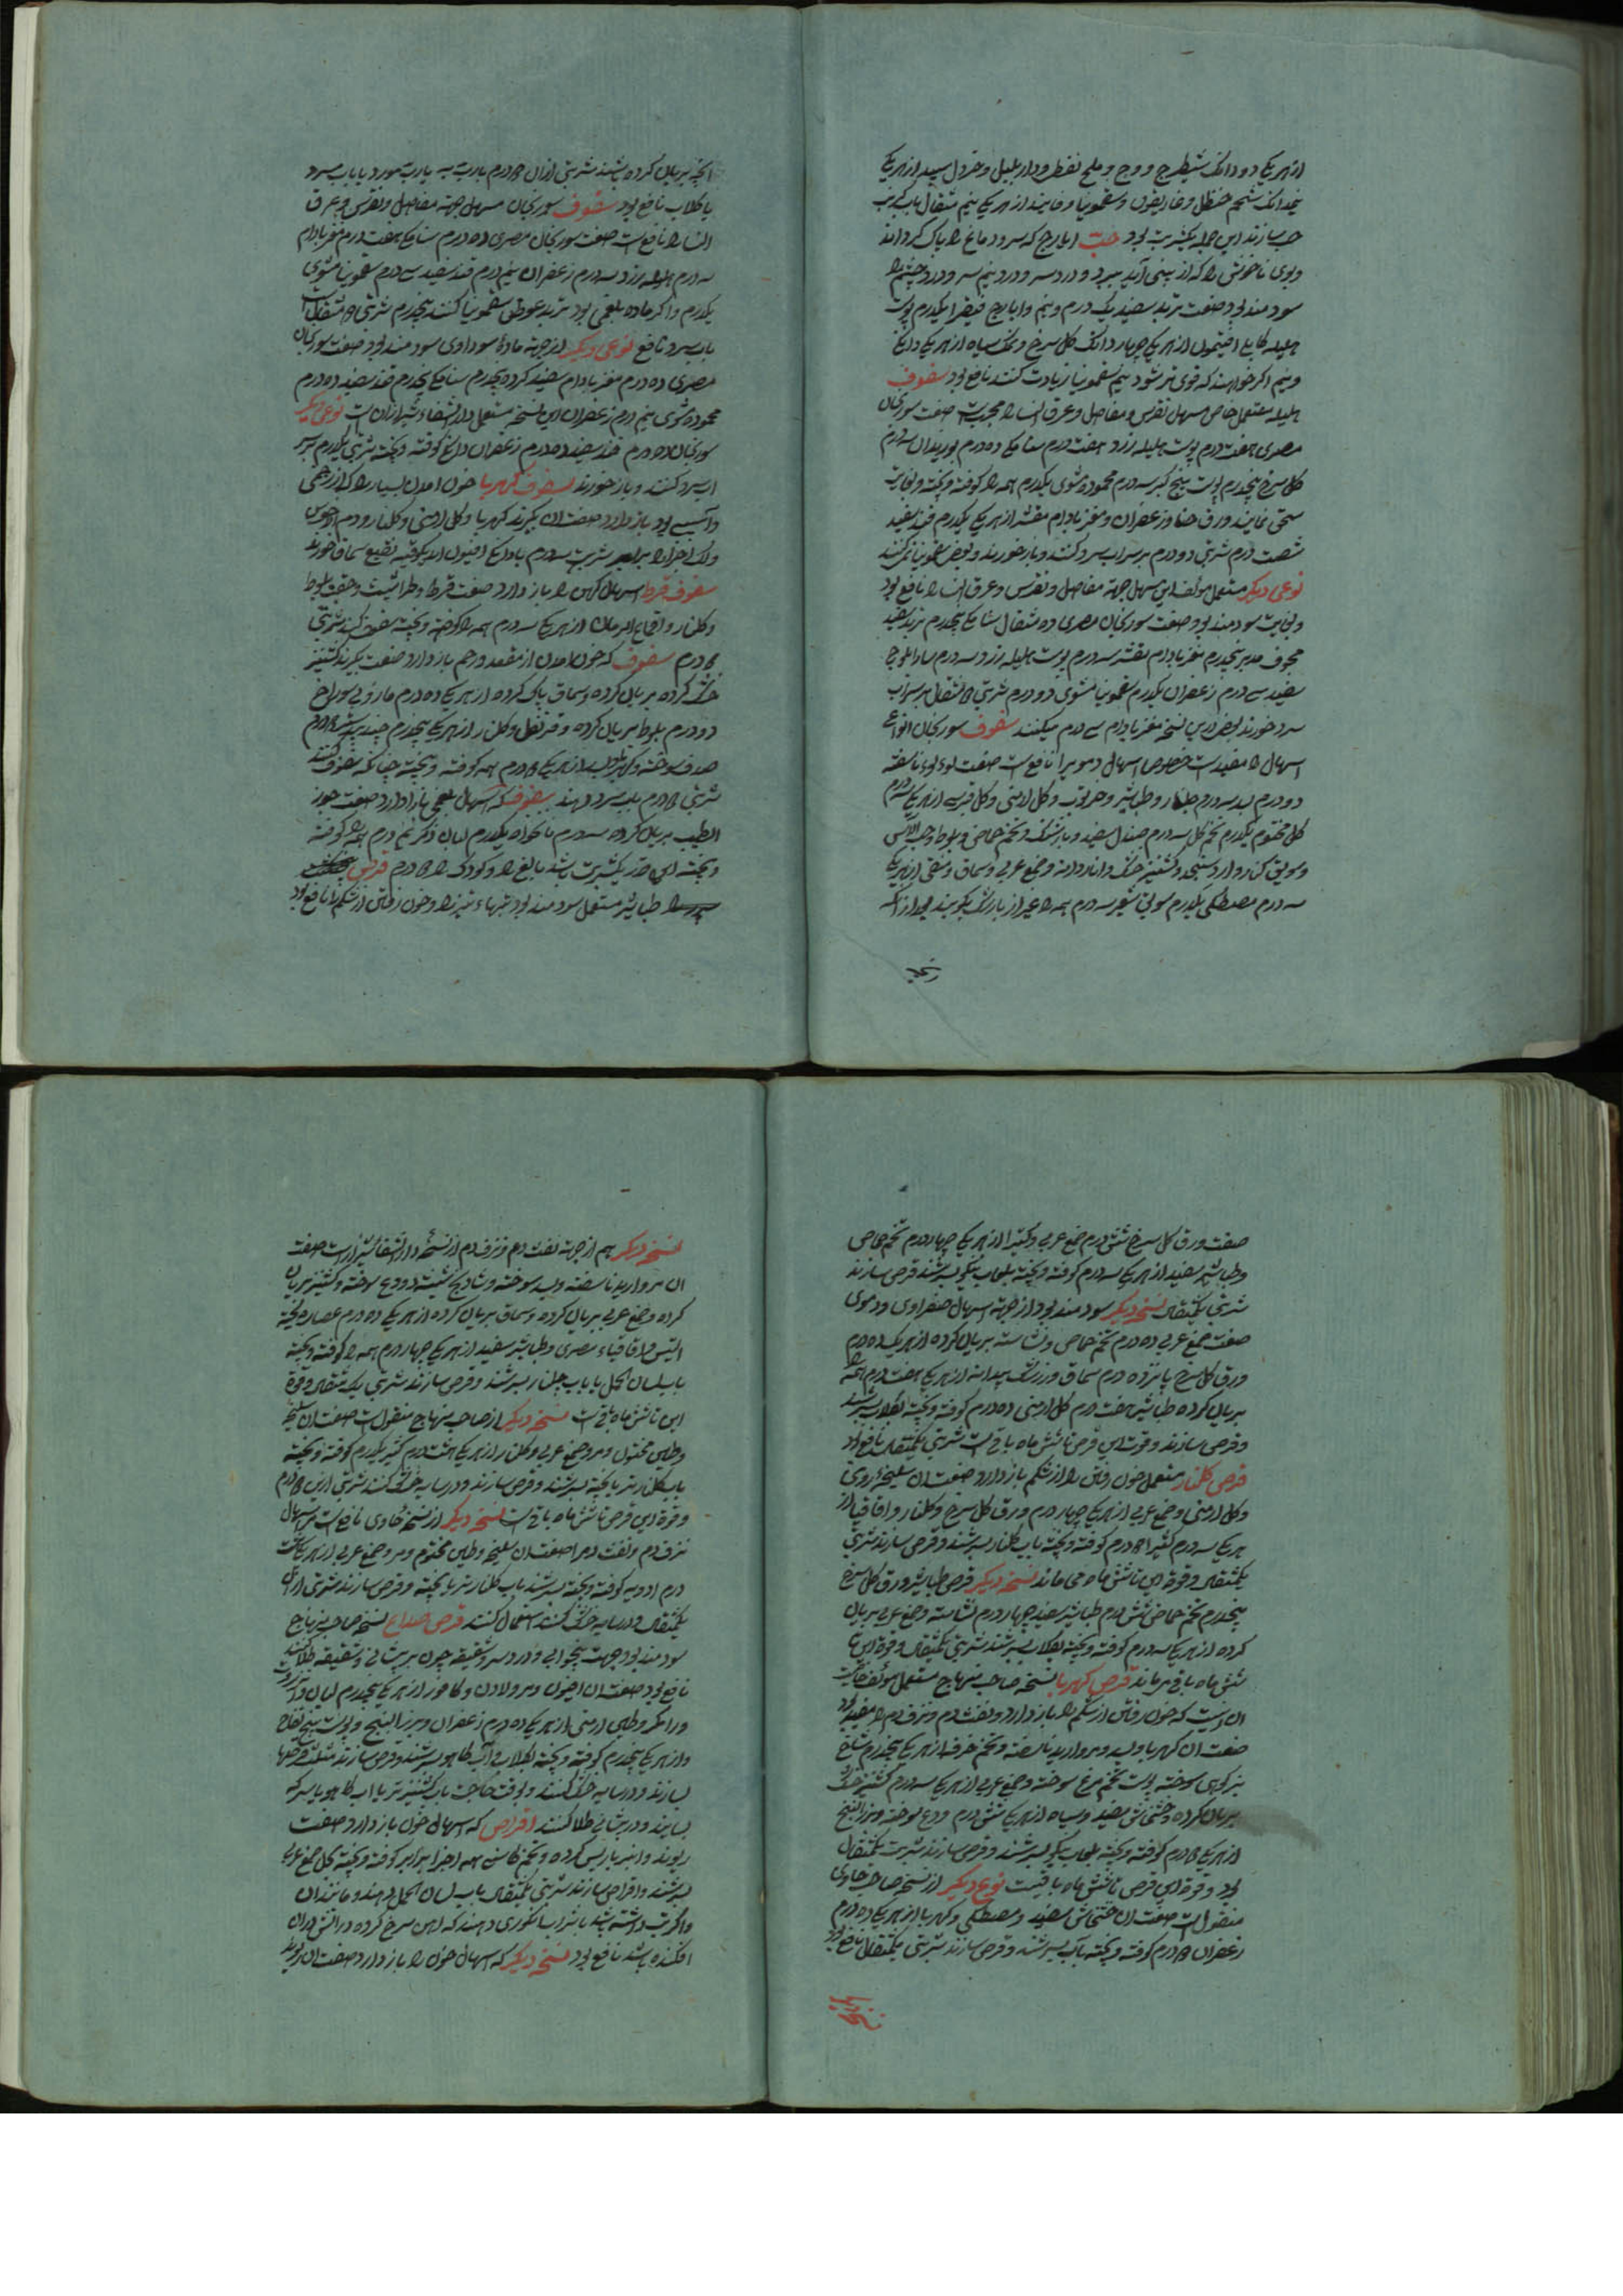 از هر یکی دو دانک شیطرج و وج و ملح نفطی و دار بلبل و خردل سپید از هر یکی
نیمدانک شحم حنظل و غاریقون و سقمونیا از هر یکی نیم مثقال باب کرنب
حب سازند این جمله یکشربت بود حب ایارج که سر و دماغ را پاک کرداند
و بوی ناخوش را که از بینی آید ببرد و درد سر و درد نیم سر و درد چشم را
سودمند بود صفت تربد سفید یک درم و نیم و ایارج فیقرا یکدرم پوست
هلیله کابلی افتیمون از هر یکی چهار دانک کل سرخ و نمک سیاه از هر یکی دانکی
و نیم اکر خواهند که قوی تر شود نیم سقمونیا زیادت کنند نافع بود سفوف
هلیله مستعمل خاص مسهل نقرس و مفاصل و عرق النسا را مجربست صفت سورنجان
مصری هفت درم پوست هلیله زرد هفت درم سنا مکی ده درم بوزیدان سه درم
کل سرخ پنجدرم پوست بیخ کبر سه درم محموده مشوی یکدرم همه را کوفته و بیخته و بغایت
سحق نمایند ورق حنا و زعفران و مغز بادام مقشر از هر یکی یکدرم قند سفید
شصت درم شربتی دو درم بر سر آب سرد کنند و باز خورند
نوعی دیکر مستعمل مؤلف این مسهل جهته مفاصل و نقرس و عرق النسا را نافع بود
و بغایت سودمند بود صفت سورنجان مصری ده مثقال سنا مکی پنجدرم تربد سفید
مجوف مدبر پنجدرم مغز بادام مقشر سه درم پوست هلیله زرد سه درم
سفید سی درم زعفران یکدرم سقمونیا مشوی دو درم شربتی ۲ مثقال
سرد خورند بعضی درین نسخه مغز بادام سی درم میکنند سفوف سورنجان انواع
اسهال را مفید است خصوصا اسهال دمویرا نافع است صفت لوءلوء ناسفته
دو درم بسد سه درم جلنار و طباشیر و خرنوب و کل ارمنی و کل قبرسی از هر یکی سه درم
کل مختوم یکدرم تخم کل سه درم صندل سفید و بارتنک و تخم حماض و بلوط و حب الآس
و سویق کنار و آرد سنجد و کشنیز خشک و اناردانه و صمغ عربی و سماق و منقی از هر یکی
سه درم مصطکی یکدرم سویق شعیر سه درم همه را غیر از بارتنک بکوبند
انچه بریان کرده باشند شربتی ازان ۲ درم بارب به یا رب مورد یا باب سرد
یا کلاب نافع بود سفوف سورنجان مسهل جهته مفاصل و نقرس و عرق
النسا را نافع است صفت سورنجان مصری ده درم سنا مکی هفت درم مغز بادام
سه درم هلیله زرد سه درم زعفران نیم درم قند سفید سی درم سقمونیا مشوی
یکدرم و اکر ماده بلغمی بود تربد عوض سقمونیا کنند پنجدرم شربتی ۲ مثقال
باب سرد نافع نوعی دیکر از جهته مادهٔ سوداوی سودمند بود صفت سورنجان
مصری ده درم مغز بادام سفید کرده پنجدرم سنا مکی پنجدرم قند سفید ده درم
محموده مشوی نیم درم زعفران این نسخه مستعمل دار الشفاء شیراز است نوعی دیکر
سورنجان ده درم قند سفید ده درم زعفران دانکی کوفته و بیخته شربتی یکدرم بر سر
اب سرد کنند و باز خورند سفوف کهربا خون امدن بسیار را که از زخمی
و آسیبی بود باز دارد صفت ان بکیرند کهربا و کل ارمنی و کلنار و دم الاخوین
سفوف قرط اسهال کهن را باز دارد صفت قرط و طراثیث و جفت بلوط
و کلنار و اقماع الرمان از هر یکی سه درم همه را کوفته و بیخته سفوف کنند شربتی
۲ درم سفوف که خون امدن از مقعد و رحم باز دارد صفت بکیرند کشنیز
خشک کرده بریان کرده و سماق پاک کرده از هر یکی ده درم مازوی بی سوراخ
دو درم بلوط بریان کرده و قرنفل و کلنار از هر یکی پنجدرم
صدف سوخته و کهربا و بسد از هر یکی ۲ درم همه کوفته و بیخته چنانکه سفوف کنند
شربتی ۲ درم باب سرد دهند سفوف که اسهال بلغمی باز دارد صفت جوز
الطیب بریان کرده سه درم نانخواه یکدرم لبان ذکر نیم درم همه را کوفته
و بیخته این قدر یکشربت باشد بالغ را و کودک را ۲ درم قرص
طباشیر مستعمل سودمند بود تبهاء تیز را و خون رفتن از شکم را نافع بود
صفت ورق کل سرخ شش درم صمغ عربی و کتیرا از هر یکی چهار درم تخم حماض
و طباشیر سفید از هر یکی سه درم کوفته و بیخته بلعاب بنکو بسرشند قرص سازند
شربتی یکمثقال نسخه دیکر سودمند بود از جهته اسهال صفراوی و دموی
صفت صمغ عربی ده درم تخم حماض و نشاسته بریان کرده از هر یک ده درم
ورق کل سرخ پانزده درم سماق و زرشک بیدانه از هر یکی هفت درم همه را
بریان کرده طباشیر هفت درم کل ارمنی ده درم کوفته و بیخته بکلاب بسرشند
و قرص سازند و قوت این قرص تا شش ماه باقی است شربتی یکمثقال نافع بود
قرص کلنار مستعمل خون رفتن را از شکم باز دارد صفت ان سلیخهٔ روی
و کل ارمنی و صمغ عربی از هر یکی چهار درم ورق کل سرخ و کلنار و اقاقیا از
هر یکی سه درم کتیرا ۲ درم کوفته و بیخته باب کلنار بسرشند و قرص سازند شربتی
یکمثقال و قوة این تا شش ماه می ماند نسخه دیکر قرص طباشیر ورق کل سرخ
پنجدرم تخم حماض شش درم طباشیر سفید چهار درم نشاسته و صمغ عربی بریان
کرده از هر یکی سه درم کوفته و بیخته بکلاب بسرشند شربتی یکمثقال و قوة این تا
شش ماه باقی میماند قرص کهربا نسخه صاحب منهاج مستعمل مؤلف
ان اینست که خون رفتن از شکم را باز دارد و نفث دم و نزف دم را مفید بود
صفت ان کهربا و بسد و مروارید ناسفته و تخم خرفه از هر یکی پنجدرم شاخ
بز کوهی سوخته پوست تخم مرغ سوخته و صمغ عربی از هر یکی سه درم کشنیز خشک
بریان کرده و خشخاش سفید و سیاه از هر یکی شش درم ودع سوخته و بزر البنج
از هر یکی ۲ درم کوفته و بیخته بلعاب بنکو بسرشند و قرص سازند شربت یکمثقال
بود و قوة این قرص تا شش ماه باقیست نوع دیکر از نسخه صاحب حاوی
منقول است صفت ان خشخاش سفید و مصطکی و کهربا از هر یکی ده درم
زعفران ۲ درم کوفته و بیخته بآب بسرشند و قرص سازند شربتی یکمثقال نافع بود
نسخه دیکر
نسخه دیکر هم از جهته نفث دم و نزف دم از نسخهٔ دار الشفا شیراز است صفت
ان مروارید ناسفته و بسد سوخته و شادنج شسته و ودع سوخته و کشنیز بریان
کرده و صمغ عربی بریان کرده و سماق بریان کرده از هر یکی ده درم عصاره لحیة
التیس و اقاقیاء مصری و طباشیر سفید از هر یکی چهار درم همه را کوفته و بیخته
باب لسان الحمل یا باب جلنار بسرشند و قرص سازند شربتی یک مثقال و قوة
این تا شش ماه باقیست نسخه دیکر از صاحب منهاج منقول است صفت ان سلیخه
و طین مختوم و مر و صمغ عربی و کلنار از هر یکی هفت درم کتیرا یکدرم کوفته و بیخته
باب کلنار تر با پخته بسرشند و قرص سازند و در سایه خشک کنند شربتی ازین ۲ درم
و قوة این قرص تا شش ماه باقی است نسخه دیکر از نسخهٔ حاوی نافع است مر اسهال
نزف دم و نفث دم را صفت ان سلیخه و طین مختوم و مر و صمغ عربی از هر یکی هفت
درم ادویه کوفته و بیخته بسرشند باب کلنار تر یا پخته و قرص سازند شربتی ازان
یکمثقال و در سایه خشک کنند استعمال کنند قرص صداع نسخه صاحب منهاج
سودمند بود جهته بیخوابی و درد سر و شقیقه چون بر پیشانی و شقیقه طلا کنند
نافع بود صفت ان افیون و مر و لادن و کافور از هر یکی پنجدرم لبان و انزروت
و رامک و طین ارمنی از هر یکی ده درم زعفران و بزر البنج و پوست بیخ لفاح
و از هر یکی پنجدرم کوفته و بیخته بکلاب و آب کاهو بسرشند و قرص سازند مثلث قرصها
بسازند و در سایه خشک کنند و بوقت حاجت باب کشنیز تر یا اب کاهو یا سرکه
بسایند و در پیشانی طلا کنند اقراص که اسهال خون باز دارد صفت
ریوند و انبر باریس کرده و تخم کاسنی همه اجزا برابر کوفته و بیخته
بسرشند و اقراص سازند شربتی یکمثقال باب لسان الحمل دهند و مانند ان
و اکر تب داشته باشد باب دهند که اهن سرخ کرده در اتش دران
افکنده باشند نافع بود نسخه دیکر که اسهال خون را باز دارد صفت ان ریوند